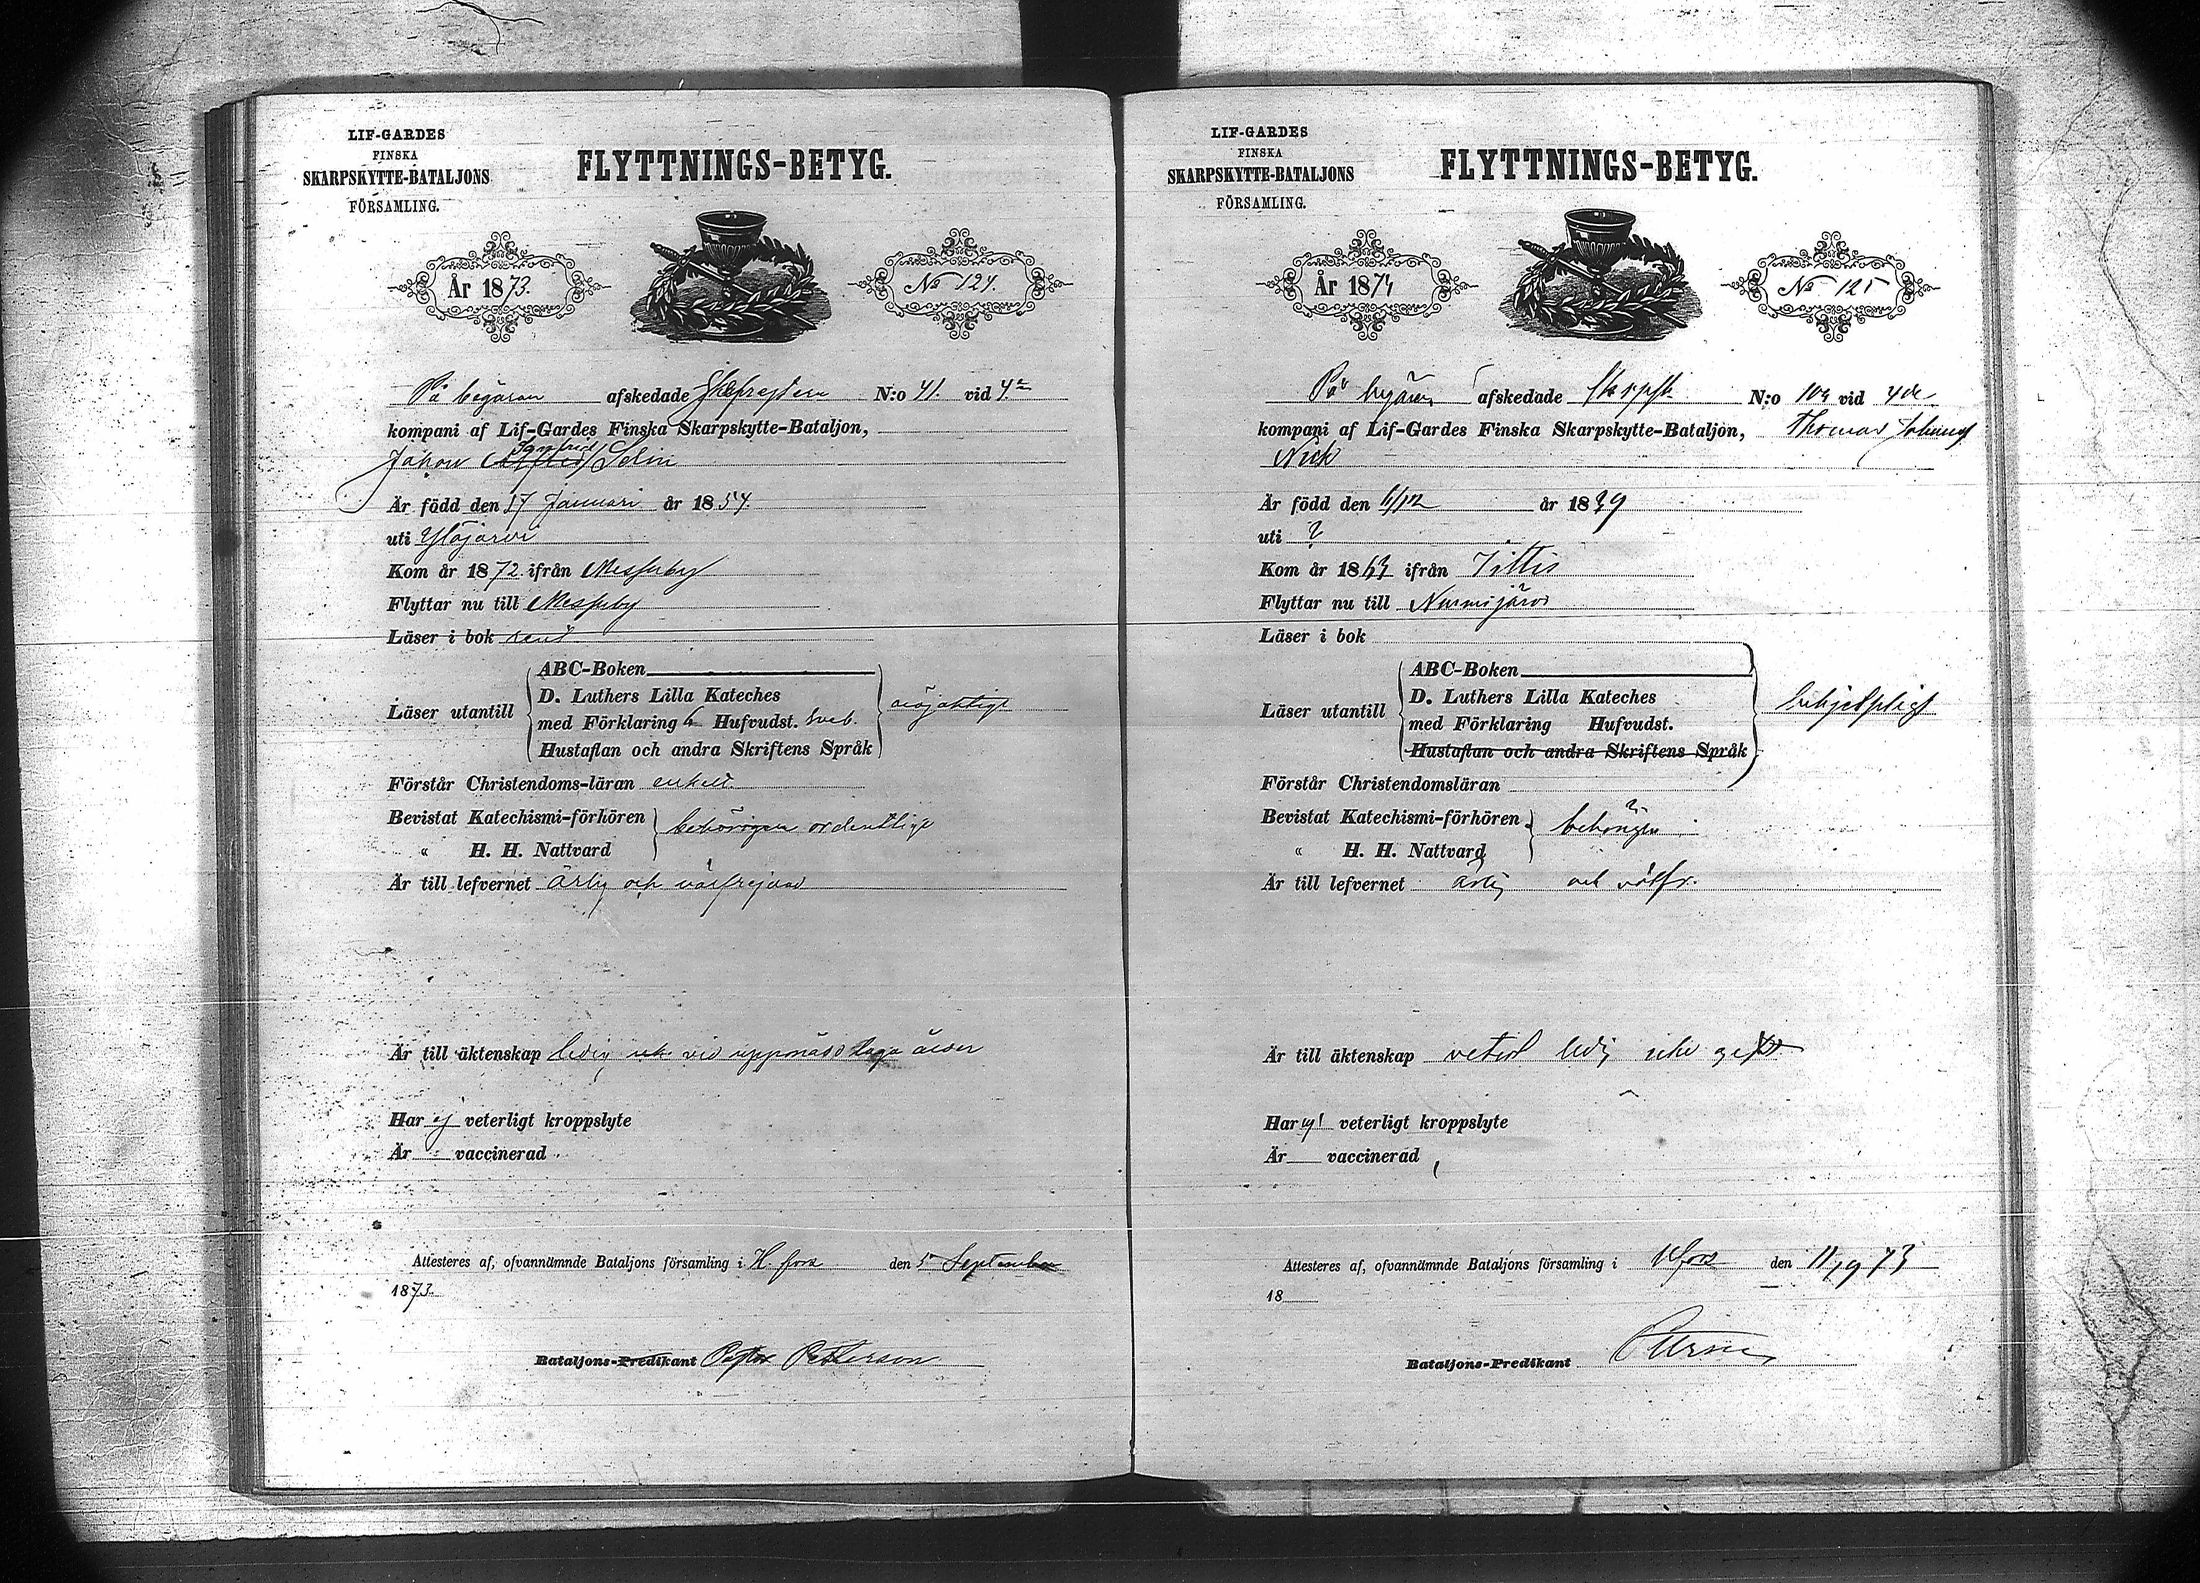 LIF-GARDES
FINSKA
SKARPSKYTTE-BATALJONS
FÖRSAMLING.
FLYTTNINGS-BETYG.
År 1873.
No 124.
På begäran afskedade N:o 41. vid 4de
kompani af Lif-Gardes Finska Skarpskytte-Bataljon,
Johan Alfred Selin
Är född den 17 Januari år 1854.
uti Ylöjärvi
Kom år 1872. ifrån Messuby
Flyttar nu till Messuby
Läser i bok rent
ABC-Boken
Läser utantill D. Luthers Lilla Kateches
med Förklaring Hufvudst. nöjaktigt
Hustaflan och andra Skriftens Språk
Förstår Christendoms-läran enkelt
Bevistat Katechismi-förhören
behörigen ordentligt
« H. H. Nattvard
Är till lefvernet ärlig och välfrejdad
Är till äktenskap ledig vid uppnådd laga ålder
Har ej veterligt kroppslyte
Är vaccinerad
Attesteres af, ofvannämnde Bataljons församling i H.fors den 5 September
1873.
Bataljons-Predikant Pastor Petterson
LIF-GARDES
FINSKA
SKARPSKYTTE-BATALJONS
FÖRSAMLING.
FLYTTNINGS-BETYG.
År 187
No 125
På begäran afskedade skarpsk. N:o vid 4de
kompani af Lif-Gardes Finska Skarpskytte-Bataljon, Thomas
Är född den år 1839
uti ?
Kom år 1863 ifrån Ittis
Flyttar nu till Nurmijärvi
Läser i bok
ABC-Boken
Läser utantill D. Luthers Lilla Kateches behjelpligt
med Förklaring Hufvudst.
Hustaflan och andra Skriftens Språk
Förstår Christendomsläran
Bevistat Katechismi-förhören ?
behörigen
« H. H. Nattvard
Är till lefvernet ärlig och välfr.
Är till äktenskap veterl. ledig icke gift
Har ej veterligt kroppslyte
Är vaccinerad
Attesteres af, ofvannämnde Bataljons församling i Hfors den 11/9 73
18
Bataljons-Predikant